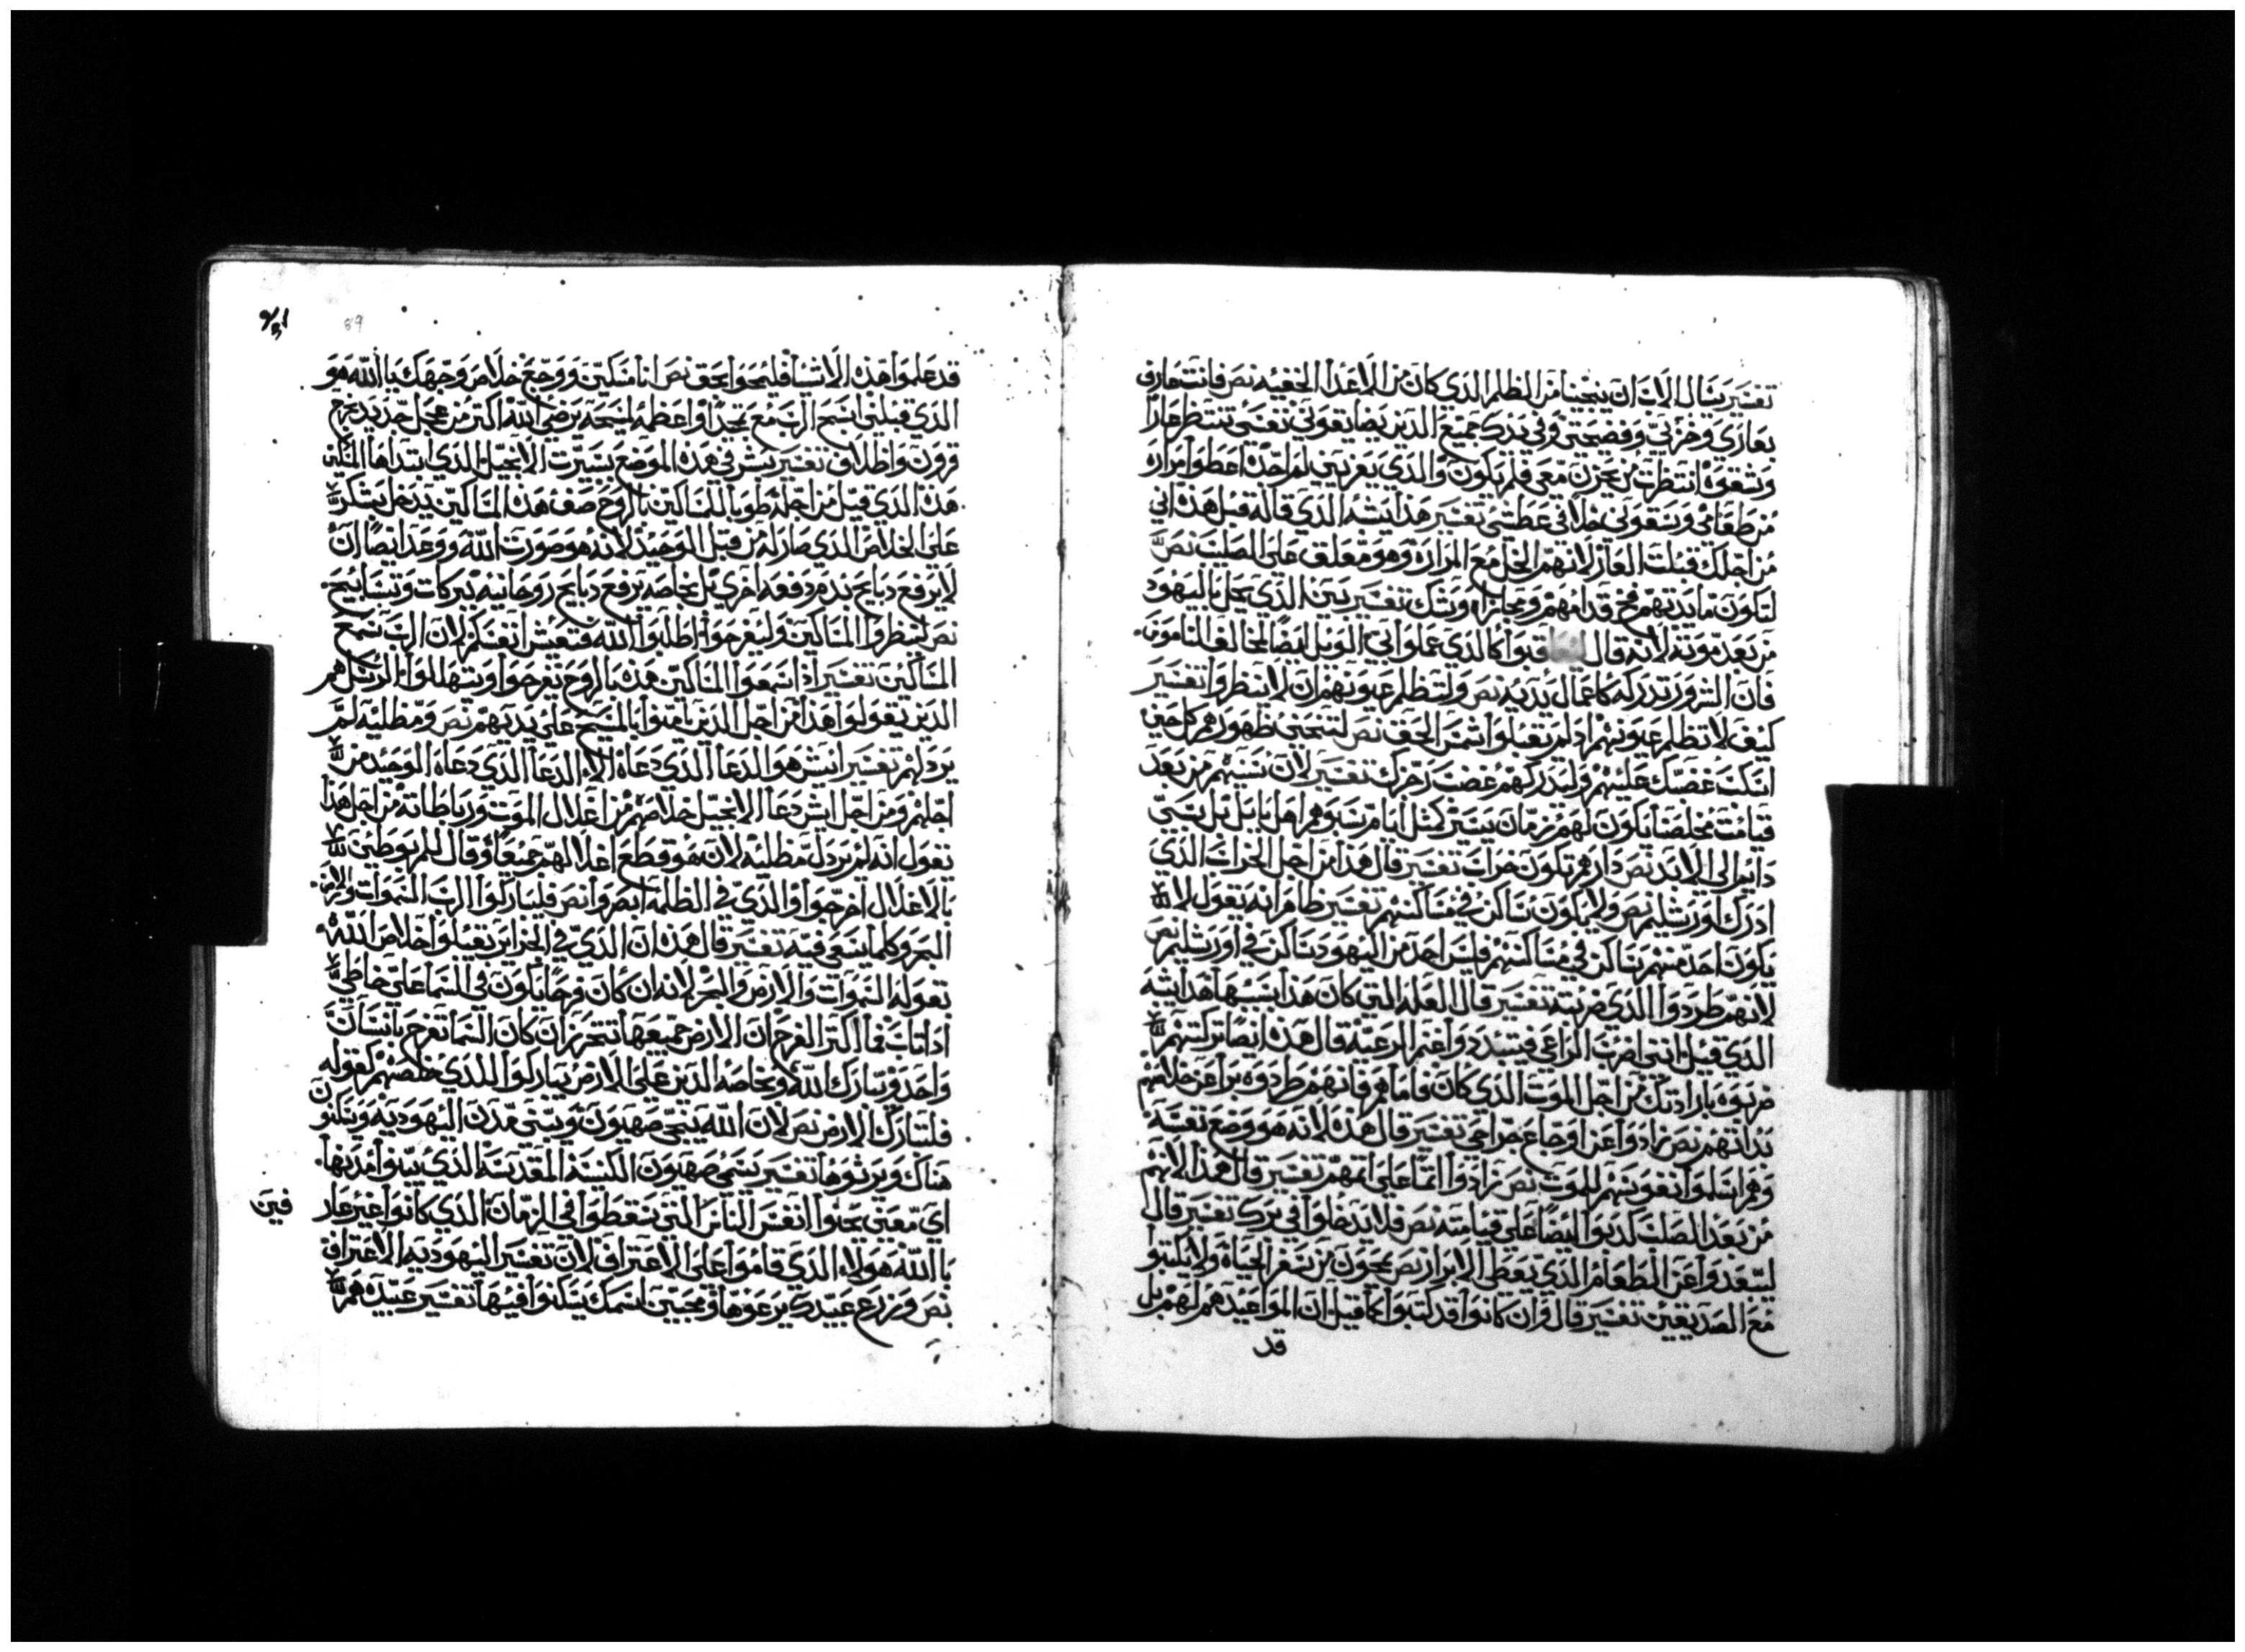 تفسير يسال الاب ان ينجينا من الظلم الذي كان من الاعدا الخفيه نص فانت عارف
بعاري وخزيي وفضيحتي وفي يدك جميع الذين يضايقوني نفسي تنتظر عارا
وشقوه انتظرت من يحزن معي فلم يكون والذي يعزيني لم اجده اعطوا مراره
من طعامي وسقوني خلا في عطشي تفسير هذا يشبه الذي قاله قبل هذه اني
من اجلك قبلت العار لانهم الخل مع المراره وهو معلق على الصلب نص
لتكون مايدتهم فخ قدامهم ومجازاه وشك تفسير يبين الذي يحل باليهود
من بعد موته لانه قال قبوا كالذي عملوا بي الويل ايضا لمخالف الناموس
فان الشرور تدركه كاعمال يديه نص ولتظلم عيونهم ان لا ينظروا تفسير
كيف لا تظلم عيونهم اذ لم يقبلوا شمس الحق نص لتنحني ظهورهم كل حين
اسكب غضبك عليهم وليدركهم غضب رجزك تفسير لان سبيهم من بعد
قيامت مخلصنا يكون لهم زمان يسير كمثل ايام سبوهم اهل بابل بل سبي
دايم الى الابد نص دارهم تكون خراب تفسير قال هذا من اجل الخراب الذي
ادرك اورشليم نص ولا يكون ساكن في مساكنهم تفسير ظاهر انه يقول لا
يكون احد منهم ساكن في مساكنهم فليس احد من اليهود ساكن في اورشليم نص
لانهم طردوا الذي ضربته تفسير قال العله التي كان هذا بسببها هذا يشبه
الذي قيل انني اضرب الراعي فيتبددوا غنم الرعيه قال هذا ايضا تركتهم
ضربوه بارادتك من اجل الموت الذي كان فاما هم فانهم طردوه براعن خلاصهم
بذاتهم نص زادوا عن اوجاع جراحي تفسير قال هذه لانه هو وضع نفسه
وهم اسلموا نفوسهم للموت نص زادوا اثما على اثمهم تفسير قال هذا لانهم
من بعد الصلب كذبوا ايضا على قيامته نص فلا يدخلوا في برك تفسير قال
ليبعدوا عن الطعام الذي يعطي الابرار نص يمحون من سفر الحياه ولا يكتبوا
مع الصديقين تفسير قال وان كانوا قد كتبوا كما قيل ان المواعيد هم لهم بل
قد
قد علموا هذه الاشيا فليمحوا بحق نص انا مسكين ووجع خلاص وجهك يا الله هو
الذي قبلني اسبح الرب مع تمجدا واعظمه بتسبحه يرضي الله اكثر من عجل جديد يخرج
قرون واظلاف تفسير يبشر في هذه الموضع ببشرت الانجيل الذي ابتداها المساكين
هذه الذي قيل من اجله طوبا للمساكين بالروح صف هذه المساكين يدخل يشكر
على الخلاص الذي صار له من قبل الوحيد لانه هو صورت الله ووعد ايضا ان
لا يرفع دبايح بدم دفعه اخري بل بخاصه يرفع دبايح روحانيه ببركات وتسابيح
نص لينظروا المساكين وليفرحوا اطلبوا الله فتعيش انفسكم لان الرب سمع
المساكين تفسير اذا سمعوا المساكين هذه بالروح يفرحوا ويتهللوا الرسل هم
الذين يقولوا هذا من اجل الذين امنوا بالمسيح على يديهم نص ومطلبه لم
يردلهم تفسير ايش هو الدعا الذي دعاه الا الدعا الذي دعاه الوحيد من
اجلهم ومن اجل ايش دعا الا لاجل خلاصهم من اغلال الموت ورباطاته من اجل هذا
نقول انه لم يردل مطلبه لان هو قطع اغلالهم جميعا وقال للمربوطين
بالاغلال اخرجوا والذي في الظلمه ابصروا نص فليباركوا الرب السموات والارض
البحر وكلما يسعي فيه تفسير قال هذه ان الذي في الجزاير تقبلوا خلاص الله
تقوله السموات والارض والبحر لانه ان كان فرحا يكون في السما على خاطي
اذا تاب فما اكتر الفرح ان الارض جميعها تتحرر ان كان السما تفرح بانسان
واحد وتبارك الله وبخاصه الدين على الارض يباركوا للذي خلصهم كقوله
فلتبارك الارض نص لان الله ينجي صهيون وتبنى مدن اليهوديه ويسكنون
هناك ويرثوها تفسير يسمي صهيون الكنيسه المقدسه الذي يبنوا مدنها
اي معني يحيوا انفس الناس التي سقطوا في الزمان الذي كانوا غير عارفين
بالله هولاء الذي قاموا على الاعتراف لان تفسير اليهوديه الاعتراف
نص وزرع عبيدك يرعوها ومحبين اسمك يسكنوا فيها تفسير عبيده هم